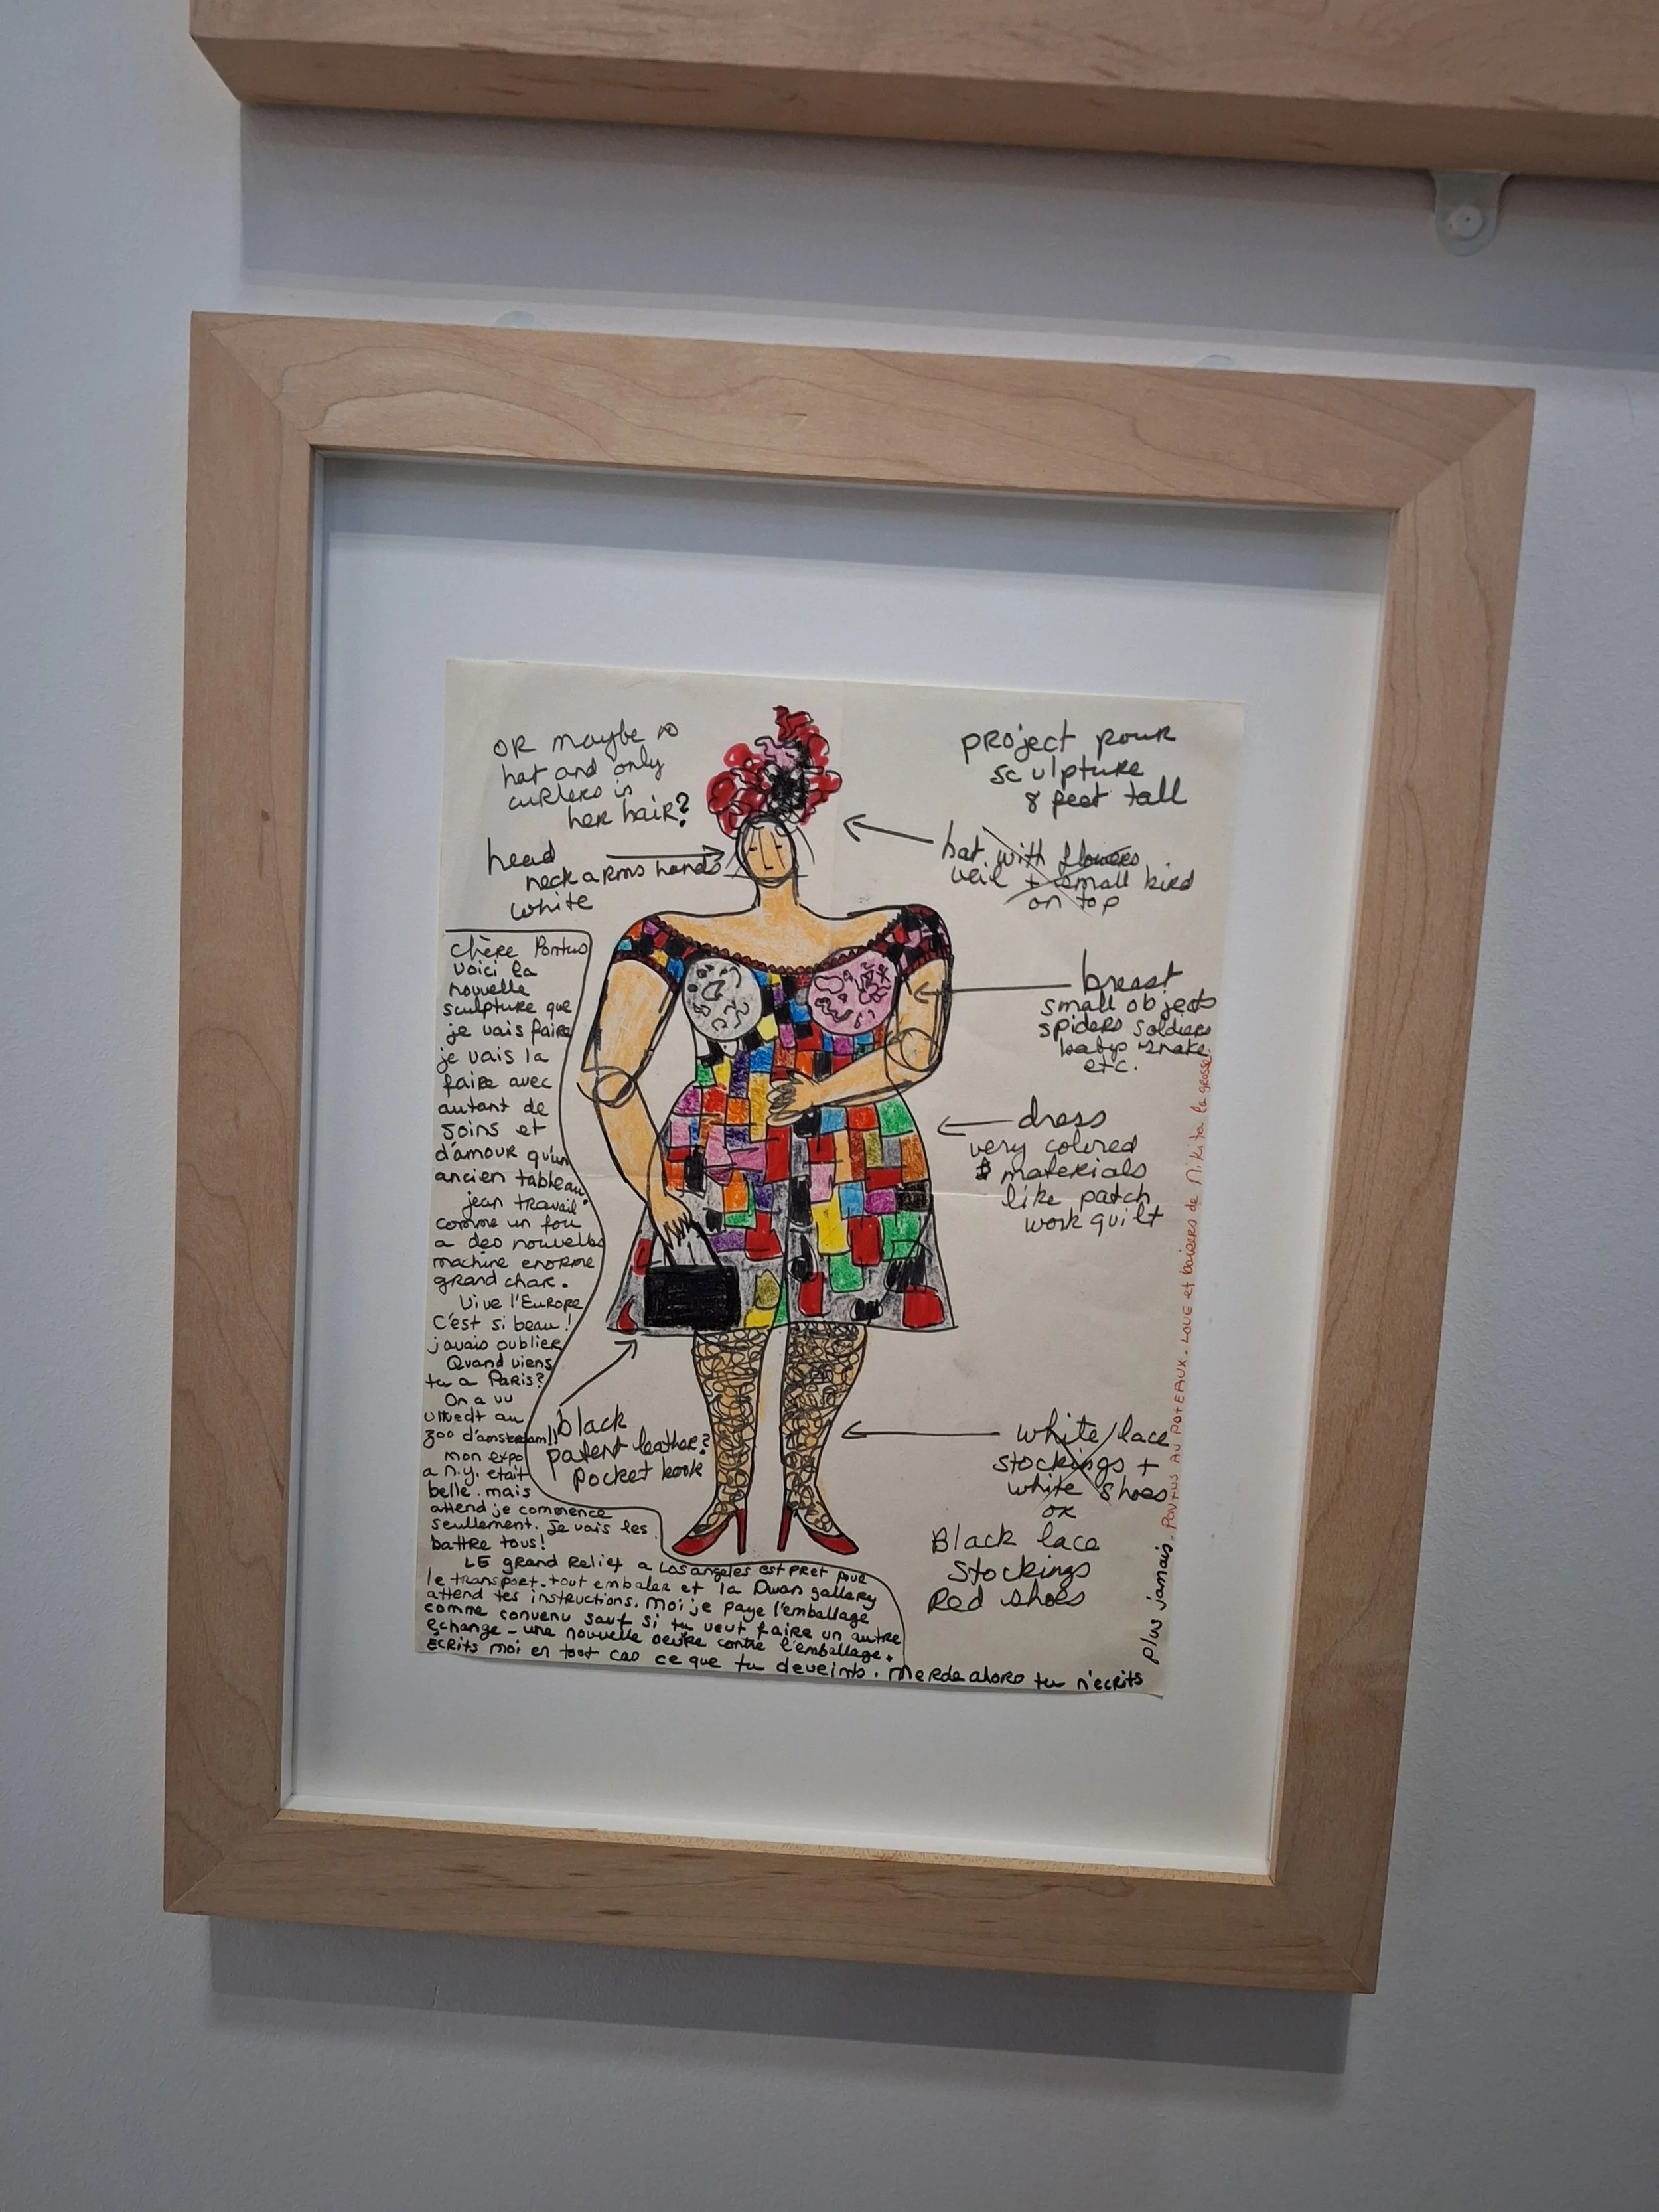 OR maybe no
hat and only
curlers in
her hair?
head
neck arms hands
white
project pour
sculpture
8 feet tall
hat with flowers
veil + small bird
on top
breast
small objects
spiders soldiers
baby snake
etc.
dress
very colored
materials
like patch
work quilt
white lace
stockings +
white shoes
or
Black lace
stockings
Red shoes
black
patent leather?
pocket book
chère Pontus
voici la
nouvelle
sculpture que
je vais faire
je vais la
faire avec
autant de
soins et
d'amour qu'un
ancien tableau
jean travail
comme un fou
a des nouvelles
machine enorme
grand char.
Vive l'Europe
C'est si beau!
javais oublier
Quand viens
tu a Paris?
On a vu
au
zoo d'amsterdam!!
mon expo
a N.Y. etait
belle. mais
attend je commence
seullement. Je vais les
battre tous!
LE grand Relief a Los angeles est PRET pour
le transport. tout embaler et la Dwan gallery
attend tes instructions. Moi je paye l'emballage
comme convenu sauf si tu veut faire un autre
echange - une nouvelle oeuvre contre l'emballage.
Ecrits moi en tout cas ce que tu deveints. merde alors tu n'ecrits
plus jamais. PONTUS AU POTEAUX. LOVE et baisers de Nikita la grosse